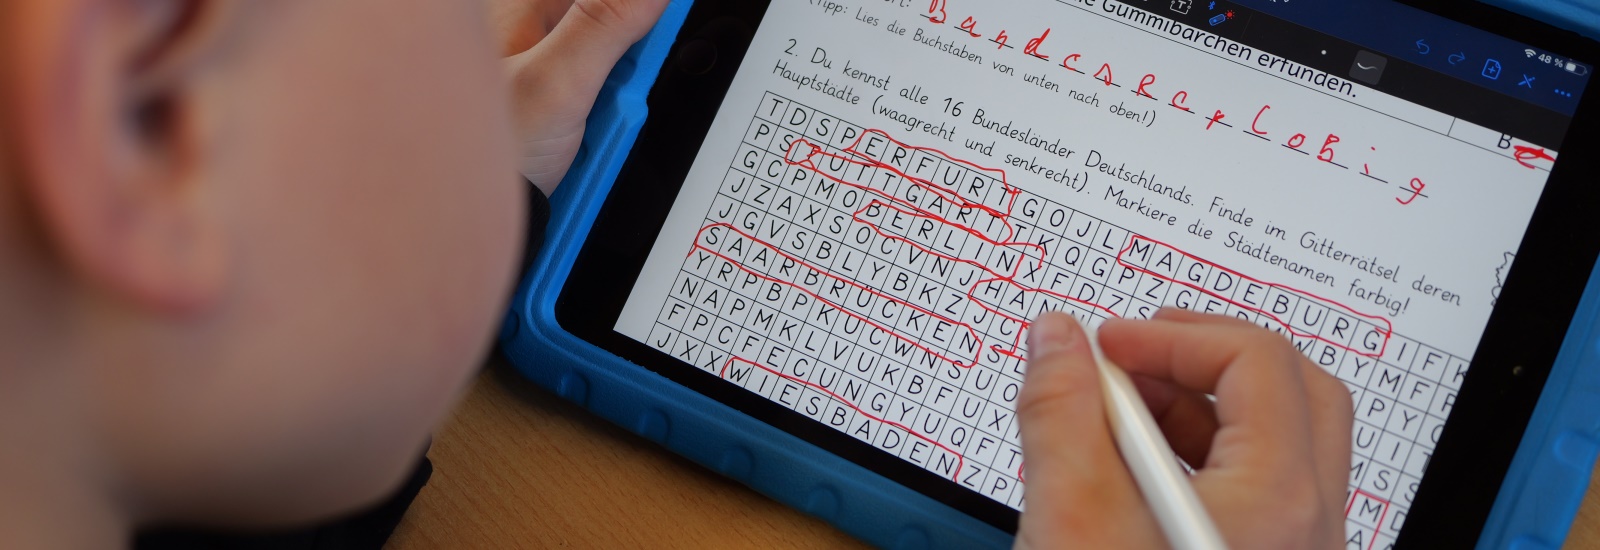 48 %
Gummibärchen erfunden.
(Tipp: Lies die Buchstaben von unten nach oben!)
2. Du kennst alle 16 Bundesländer Deutschlands. Finde im Gitterrätsel deren
Hauptstädte (waagrecht und senkrecht). Markiere die Städtenamen farbig!
T D S P E R F U R T G O J L M A G D E B U R G I F K
P S T U T T G A R T T K Q G P Z G
W B Y M F
G C P M O B E R L I N X F D Z S
P Y
J Z A X S O C V N J H A N N
U I
J G V S B L Y B K Z J C
M S S
S A A R B R Ü C K E N S
M D
Y R P B P K U C W N S U O
A
N A P M K L V U K B F U X
F P C F E C U N G Y U Q F T
J X X W I E S B A D E N Z P